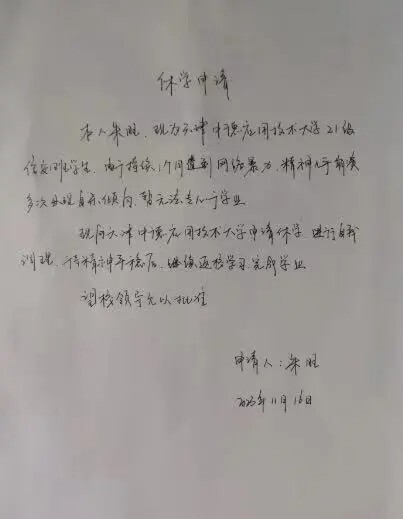 休学申请
本人朱旺，现为天津中德应用技术大学21级
信安班学生，由于持续1个月遭到网络暴力，精神几乎崩溃
多次出现自杀倾向，暂无法专心于学业
现向天津中德应用技术大学申请休学，进行自我
调理，待精神平稳后，继续返校学习完成学业
望校领导予以批准
申请人：朱旺
2023年11月16日